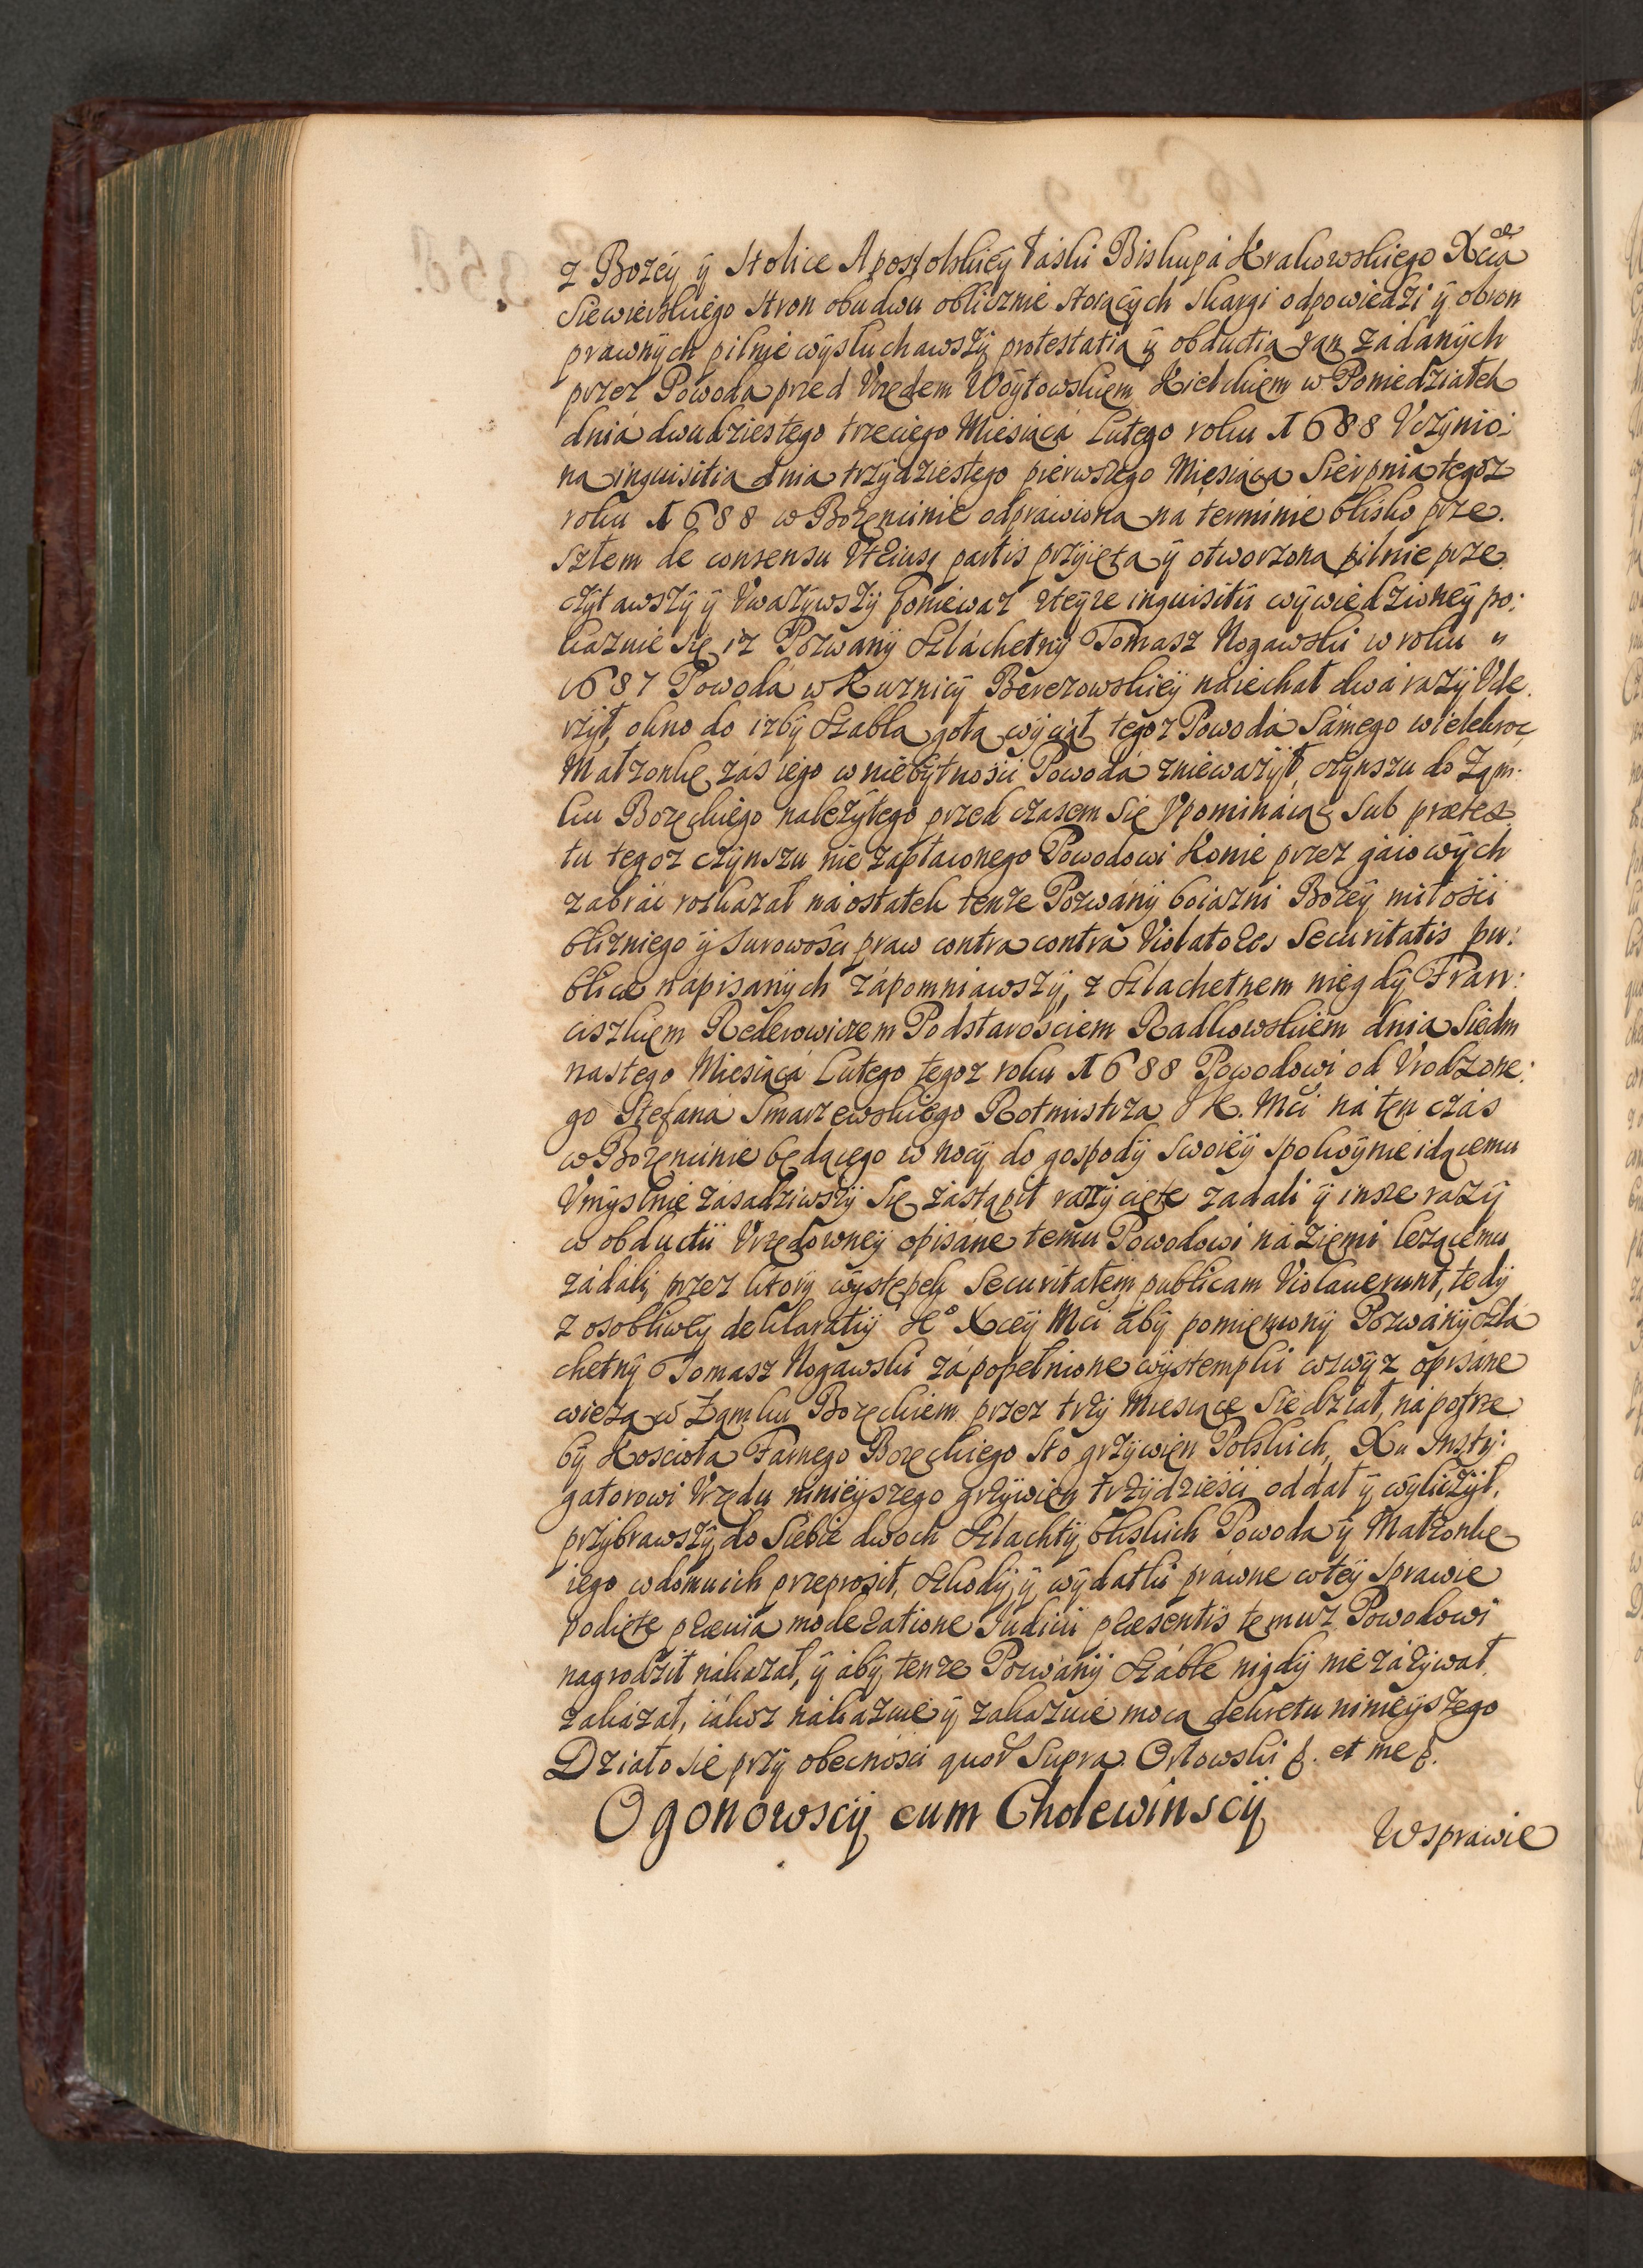 z Bożey ÿ Stolice Apostolskieÿ łáski Biskupá Krakowskiego Xcia
Siewierskiego stron obudwu oblicznie stoiącÿch skargi odpowiedzi ÿ obron
prawnÿch pilnie wÿsłuchawszÿ protestatia ÿ obductia ran zádanÿch
przez Powoda przed Vrzędem Woÿtowskiem Kieleckiem w Poniedziałek
dniá dwudziestego trzeciego Miesiącá Lutego roku 1688 Vczÿnio:
na inquisitia dnia trzÿdziestego pierwszego Miesiąca Sierpnia tegoż
roku 1688 w Bozęncinie odprawiona ná terminie blisko prze:
szłem de consensu Vtriusq partis przÿięta ÿ otworzona pilnie prze:
czÿtawszÿ ÿ Vważÿwszÿ Ponieważ zteÿże inquisitii wÿwiedzioneÿ po:
kazuie się iż Pozwanÿ Szláchetnÿ Tomasz Nogawski w roku "
1687 Powodá w Kuznicÿ Berezowskieÿ náiechał dwá razÿ Vde:
rzÿł, okno do izbÿ Szabla gołą wÿciął tegoż Powodá Sámego wielekroć
Małżonkę záś iego w niebÿtności Powodá znieważÿł, czÿnszu do Zam:
ku Bozęckiego należÿtego przed czasem się Vpomináiąc sub prætex:
tu tegoż czÿnszu nie zapłaconego Powodowi Konie przez gáiowÿch
zabráć roskazał náostatek tenże Pozwánÿ boiazni Bożeÿ miłości
bliźniego ÿ surowości praw contra contrá Violatores Securitatis pu:
blicæ nápisanÿch zápomniawszÿ, z Szlachetnem niegdÿ Fran:
ciszkiem Rederowiczem Podstarościem Radkowskiem dnia Siedm
nastego Miesiącá Lutego tegoż roku 1688 Powodowi od Vrodzone:
go Stefaná Smarzewskiego Rotmistrza J K. Mci ná ten czás
w Bozęncinie będącego w nocÿ do gospodÿ swoieÿ spokoÿnie idącemu
Vmÿslnie zásadziwszÿ się zástąpił razÿ cięte zadali ÿ insze razÿ
w obductii Vrzędowneÿ opisáne temu Powodowi ná ziemi leżącemu
zádáli, przez ktorÿ wÿstępek Securitatem publicam Violauerunt, tedÿ
z osobliweÿ deklaratiÿ Jº Xceÿ Mci ábÿ pomieniony Pozwánÿ Szlá
chetnÿ Tomasz Nogawski zá popełnione wÿstempki wzwÿż opisáne
wieżą w Zamku Bozęckiem przez trzÿ Miesiące siedział, ná potrze
bÿ Kościoła Farnego Bozęckiego sto grzÿwien Polskich, Xu Instÿ:
gatorowi Vrzędu ninieÿszego grzÿwien trzÿdzieści oddał ÿ wÿliczÿł,
przÿbrawszÿ do siebie dwoch Szlachtÿ, bliskich Powoda ÿ Małżonkę
iego w domu ich przeprosił, szkodÿ, ÿ wÿdatki práwne w teÿ sprawie
podięte præuia moderatione Iudicii præsentis temuż Powodowi
nagrodził nákazał, ÿ ábÿ tenże Pozwánÿ Száble nigdÿ nie záżÿwał
zakázał, iákoż nákázuie ÿ zakazuie mocą dekretu ninieÿszego
Działo się przÿ obecności quor Supra Orłowski &. et me &.
Ogonowscÿ cum Cholewinscÿ
W sprawie